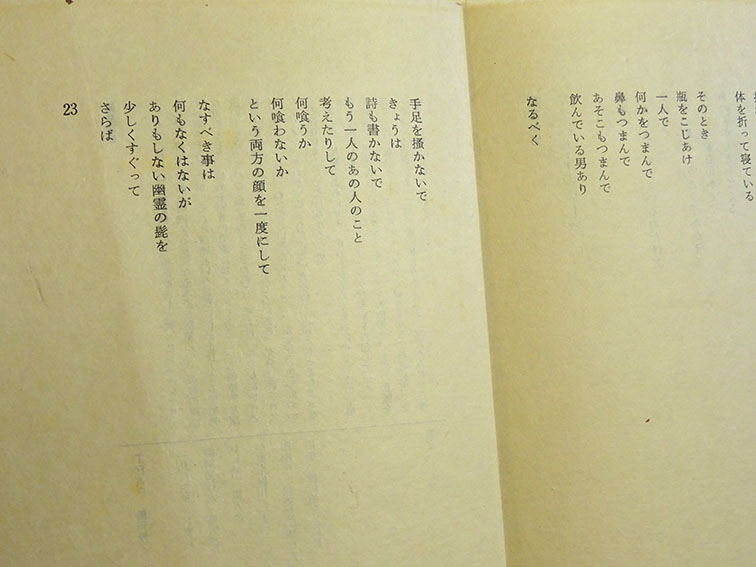 体を折って寝ている
そのとき
瓶をこじあけ
一人で
何かをつまんで
鼻もつまんで
あそこもつまんで
飲んでいる男あり
なるべく
手足を搔かないで
きょうは
詩も書かないで
もう一人のあの人のこと
考えたりして
何喰うか
何喰わないか
という両方の顔を一度にして
なすべき事は
何もなくはないが
ありもしない幽霊の髭を
少しくすぐって
さらば
23